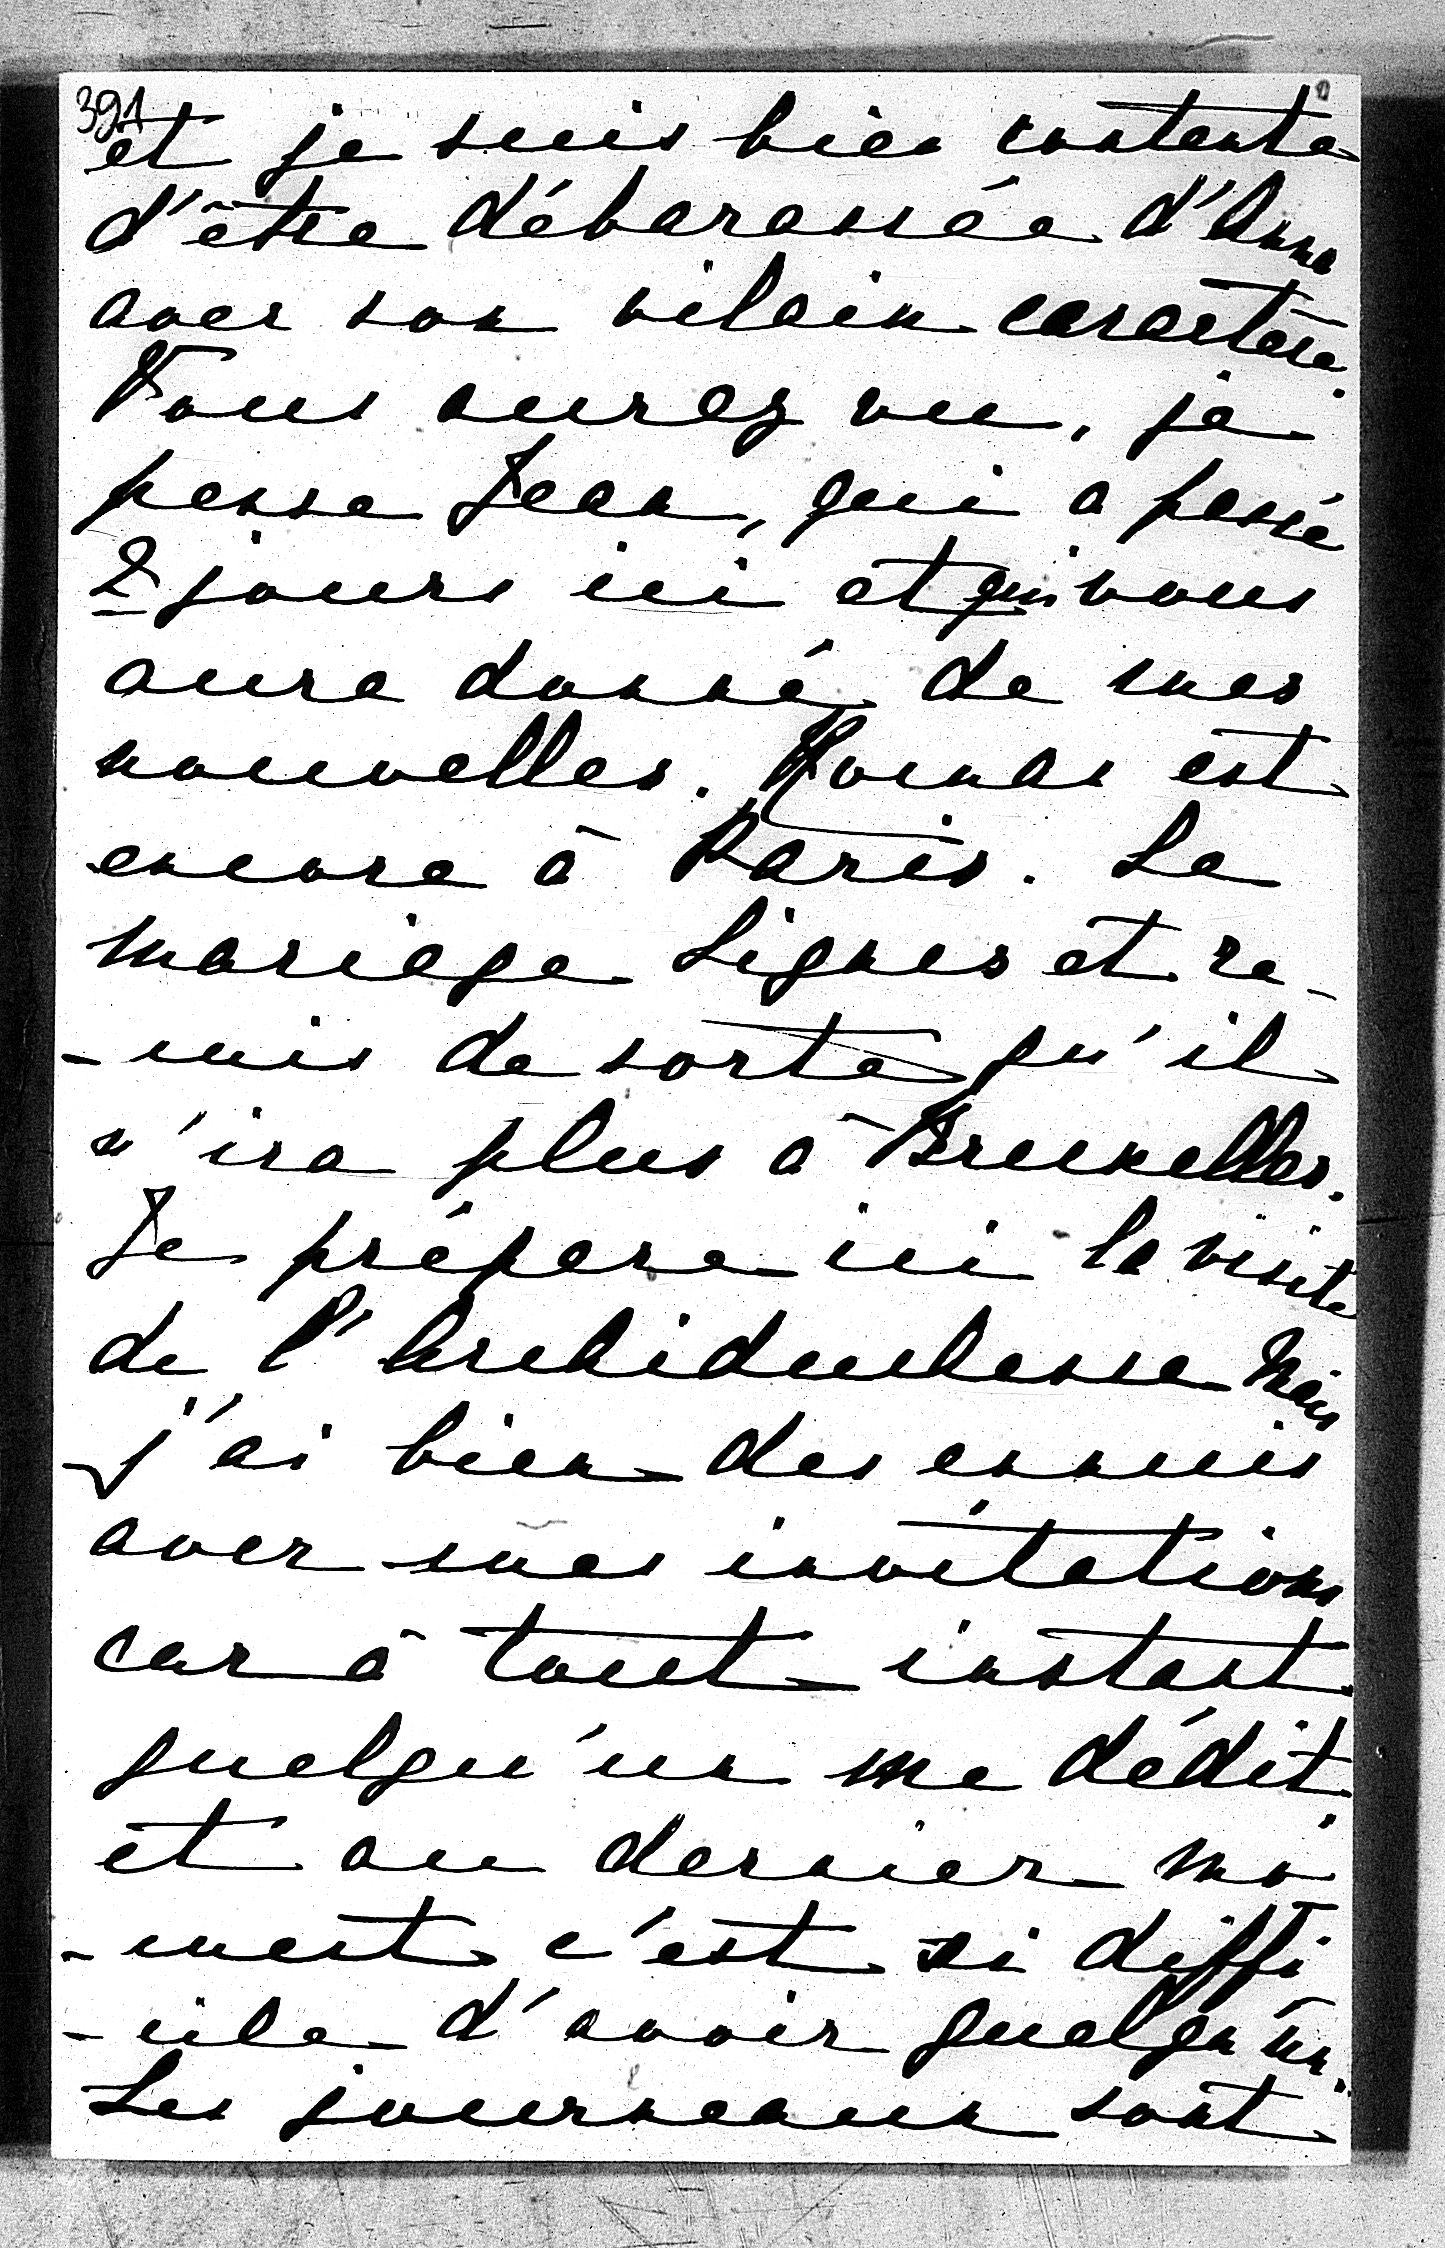 391
et je suis bien contente
d'être débarassée d'Anna
avec son vilain caractère.
Vous aurez vu, je
pense Jean, qui a passé
2 jours ici et qui vous
aura donné de mes
nouvelles. est
encore à Paris. Le
mariage Lignes et re-
-mis de sorte qu'il
n'ira plus à Bruxelles.
Je prépare ici la visite
de l'Archiduchesse Mais
j'ai bien des ennuis
avec mes invitations
car à tout instant
quelqu'un me dédit
et au dernier mo
-ment c'est si diffi
-cile d'avoir quelqu'un.
Les journeaux sont